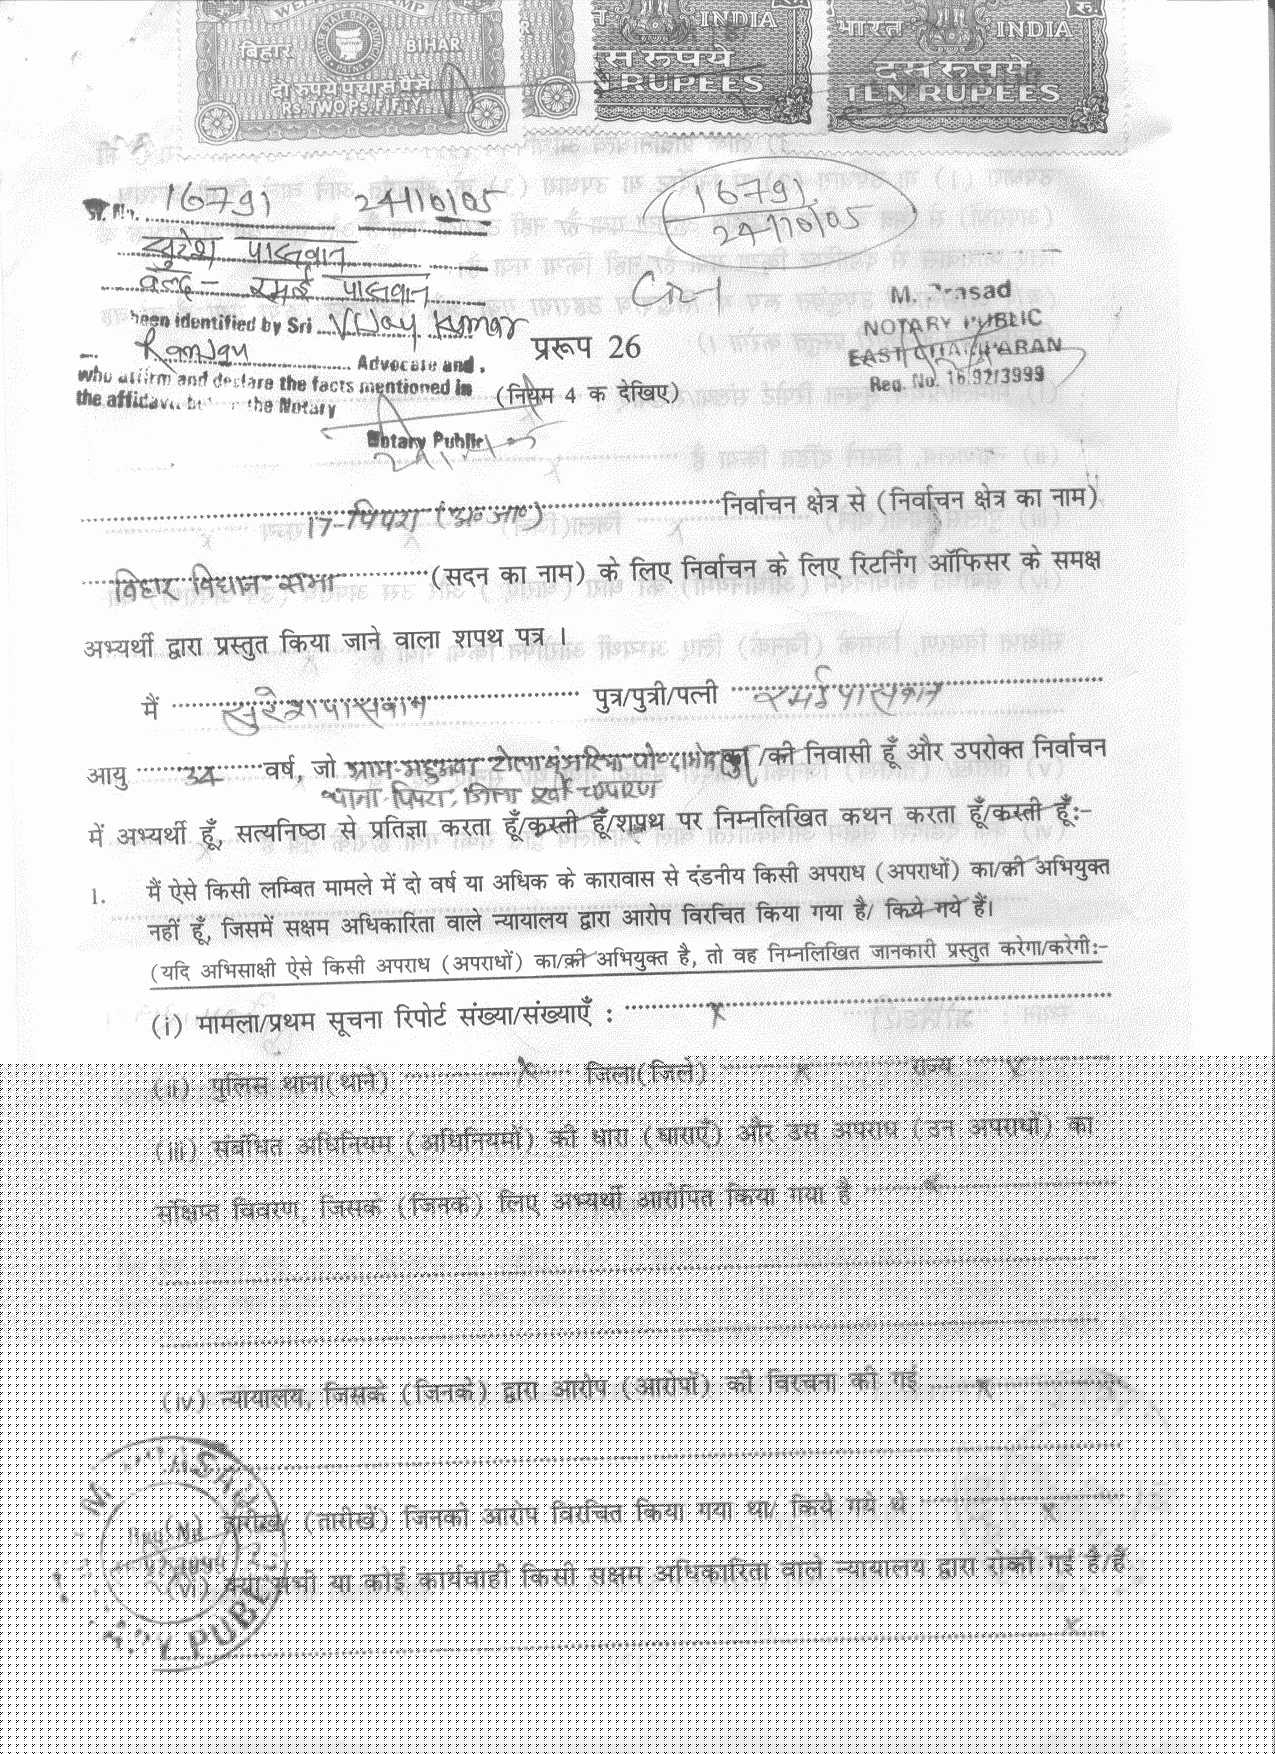 WELFARE STAMP
बिहार BIHAR
दो रुपये पचास पैसे
Rs. TWO Ps. FIFTY
INDIA
दस रुपये
TEN RUPEES
भारत INDIA
दस रुपये
TEN RUPEES
16791 24/10/05
16791
24/10/05
सुरेश पासवान
वल्द - रमई पासवान
been identified by Sri Vijay Kumar
Advocate and
who affirm and declare the facts mentioned in
the affidavit before the Notary
Notary Public
M. Prasad
NOTARY PUBLIC
EAST CHAMPARAN
Reg. No.
प्ररूप 26
(नियम 4 क देखिए)
17-पिपरा (अ० जा०) निर्वाचन क्षेत्र से (निर्वाचन क्षेत्र का नाम)
बिहार विधान सभा (सदन का नाम) के लिए निर्वाचन के लिए रिटर्निंग ऑफिसर के समक्ष
अभ्यर्थी द्वारा प्रस्तुत किया जाने वाला शपथ पत्र ।
मैं सुरेश पासवान पुत्र/पुत्री/पत्नी रमई पासवान
आयु 34 वर्ष, जो ग्राम- का/की निवासी हूँ और उपरोक्त निर्वाचन
थाना-पिपरा, जिला पूर्वी चम्पारण
में अभ्यर्थी हूँ, सत्यनिष्ठा से प्रतिज्ञा करता हूँ/करती हूँ/शपथ पर निम्नलिखित कथन करता हूँ/करती हूँ:-
1. मैं ऐसे किसी लम्बित मामले में दो वर्ष या अधिक के कारावास से दंडनीय किसी अपराध (अपराधों) का/की अभियुक्त
नहीं हूँ, जिसमें सक्षम अधिकारिता वाले न्यायालय द्वारा आरोप विरचित किया गया है/ किये गये हैं।
(यदि अभिसाक्षी ऐसे किसी अपराध (अपराधों) का/की अभियुक्त है, तो वह निम्नलिखित जानकारी प्रस्तुत करेगा/करेगी:-
(i) मामला/प्रथम सूचना रिपोर्ट संख्या/संख्याएँ : x
(ii) पुलिस थाना(थाने) x जिला(जिले) x राज्य x
(iii) संबंधित अधिनियम (अधिनियमों) की धारा (धाराएँ) और उस अपराध (उन अपराधों) का
संक्षिप्त विवरण, जिसके (जिनके) लिए अभ्यर्थी आरोपित किया गया है x
(iv) न्यायालय, जिसके (जिनके) द्वारा आरोप (आरोपों) की विरचना की गई x
(v) तारीख/ (तारीखें) जिनको आरोप विरचित किया गया था/ किये गये थे x
(vi) क्या सभी या कोई कार्यवाही किसी सक्षम अधिकारिता वाले न्यायालय द्वारा रोकी गई है/हैं
x